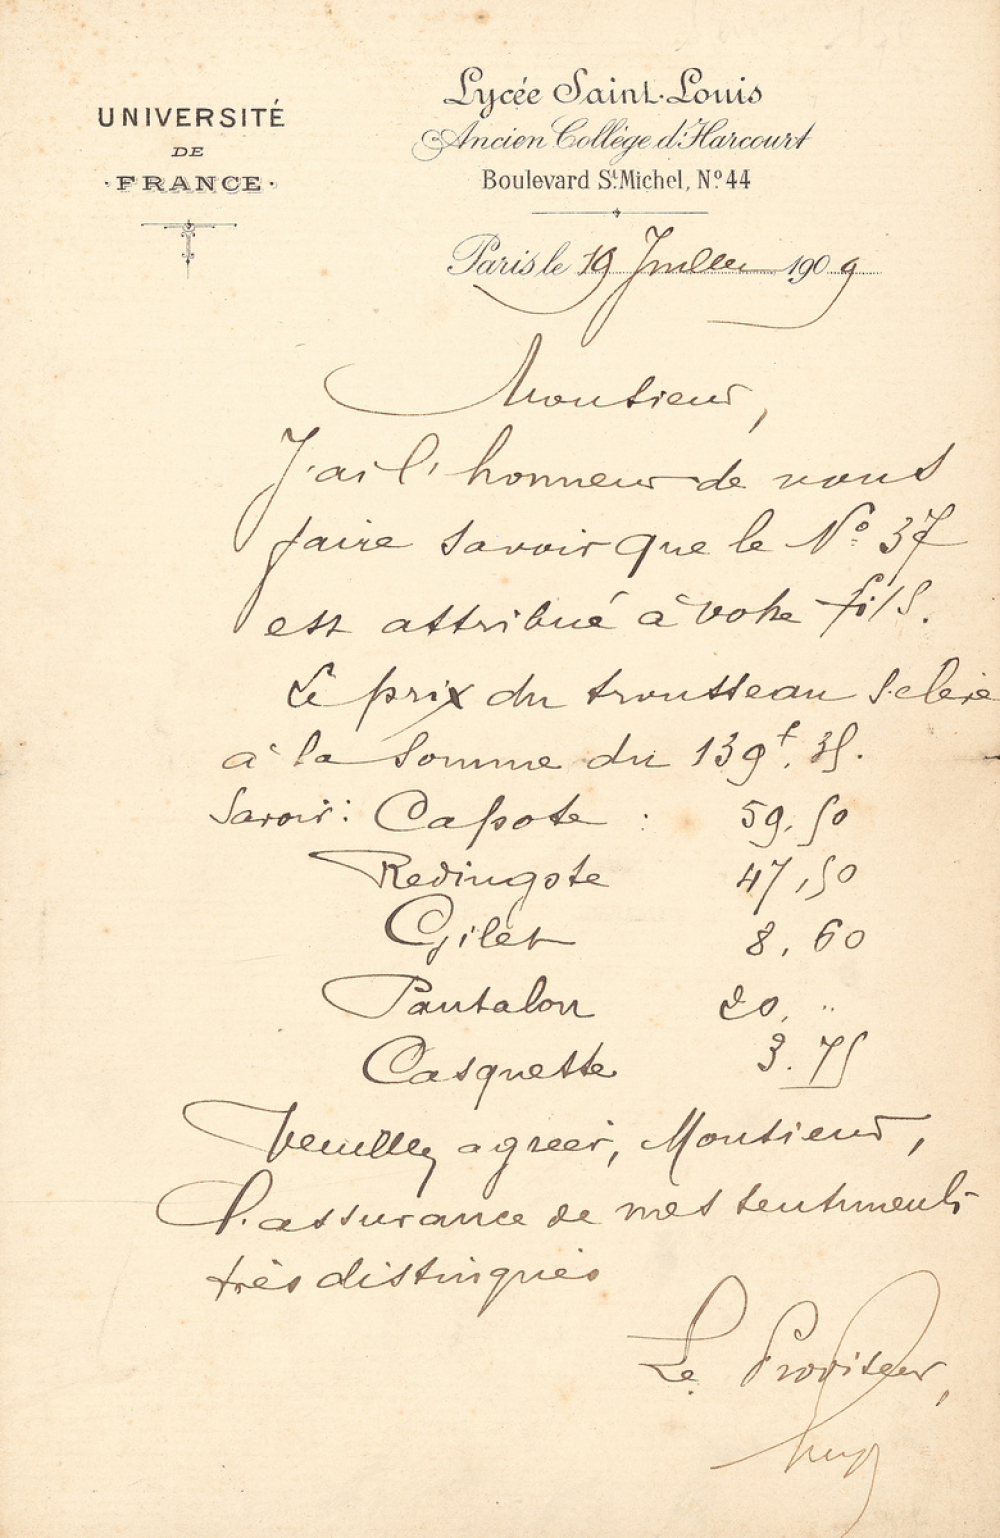 UNIVERSITÉ
DE
·FRANCE·
Lycée Saint-Louis
Ancien Collège d'Harcourt
Boulevard St Michel, No 44
Paris le 19 Juillet 1909
Monsieur,
J'ai l'honneur de vous
faire savoir que le No 37
est attribué à votre fils.
Le prix du trousseau s'elève
à la somme du 139f. 35.
Savoir: Capote : 59.50
Redingote 47,50
Gilet 8.60
Pantalon 20. "
Casquette 3.75
Veuillez agréer, Monsieur,
l'assurance de mes sentiments
très distingués
Le Proviseur,